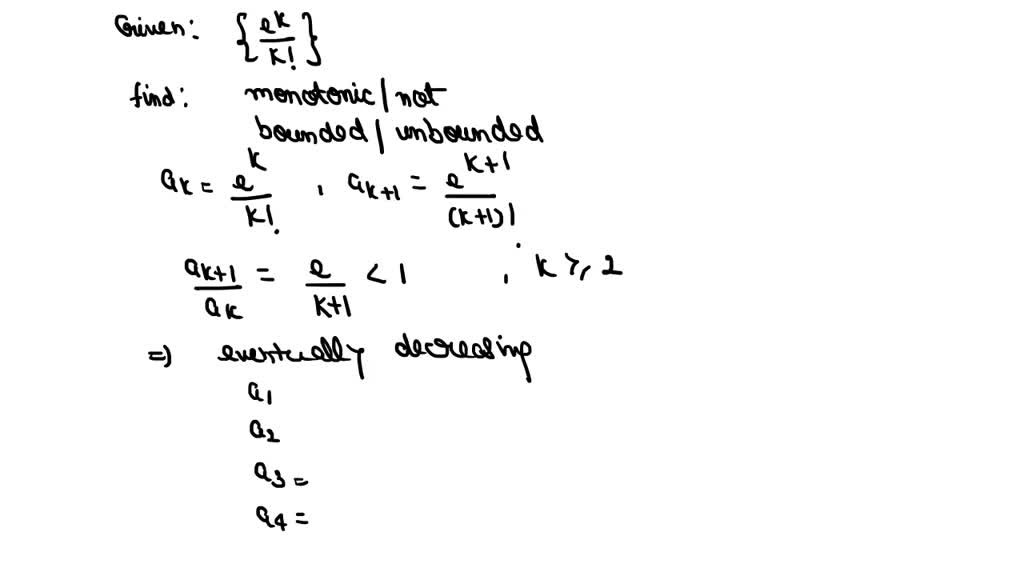 Given: { e^k / k! }
find: monotonic / not
bounded / unbounded
a_k = e^k / k! , a_{k+1} = e^{k+1} / (k+1)!
a_{k+1} / a_k = e / k+1 < 1 , k ≥ 2
=) eventually decreasing
a_1
a_2
a_3 =
a_4 =